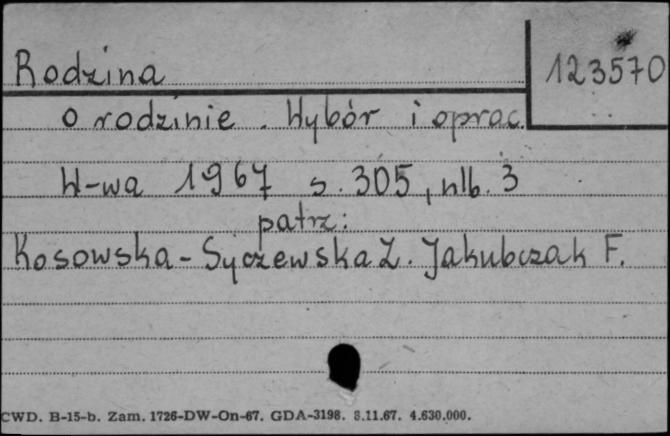 Rodzina
123570
o rodzinie. Wybór i oprac.
W-wa 1967 s. 305, nlb. 3
patrz:
Kosowska-Syczewska Z. Jakubczak F.
CWD. B-15-b. Zam. 1726-DW-On-67. GDA-3198. 8.11.67. 4.630.000.